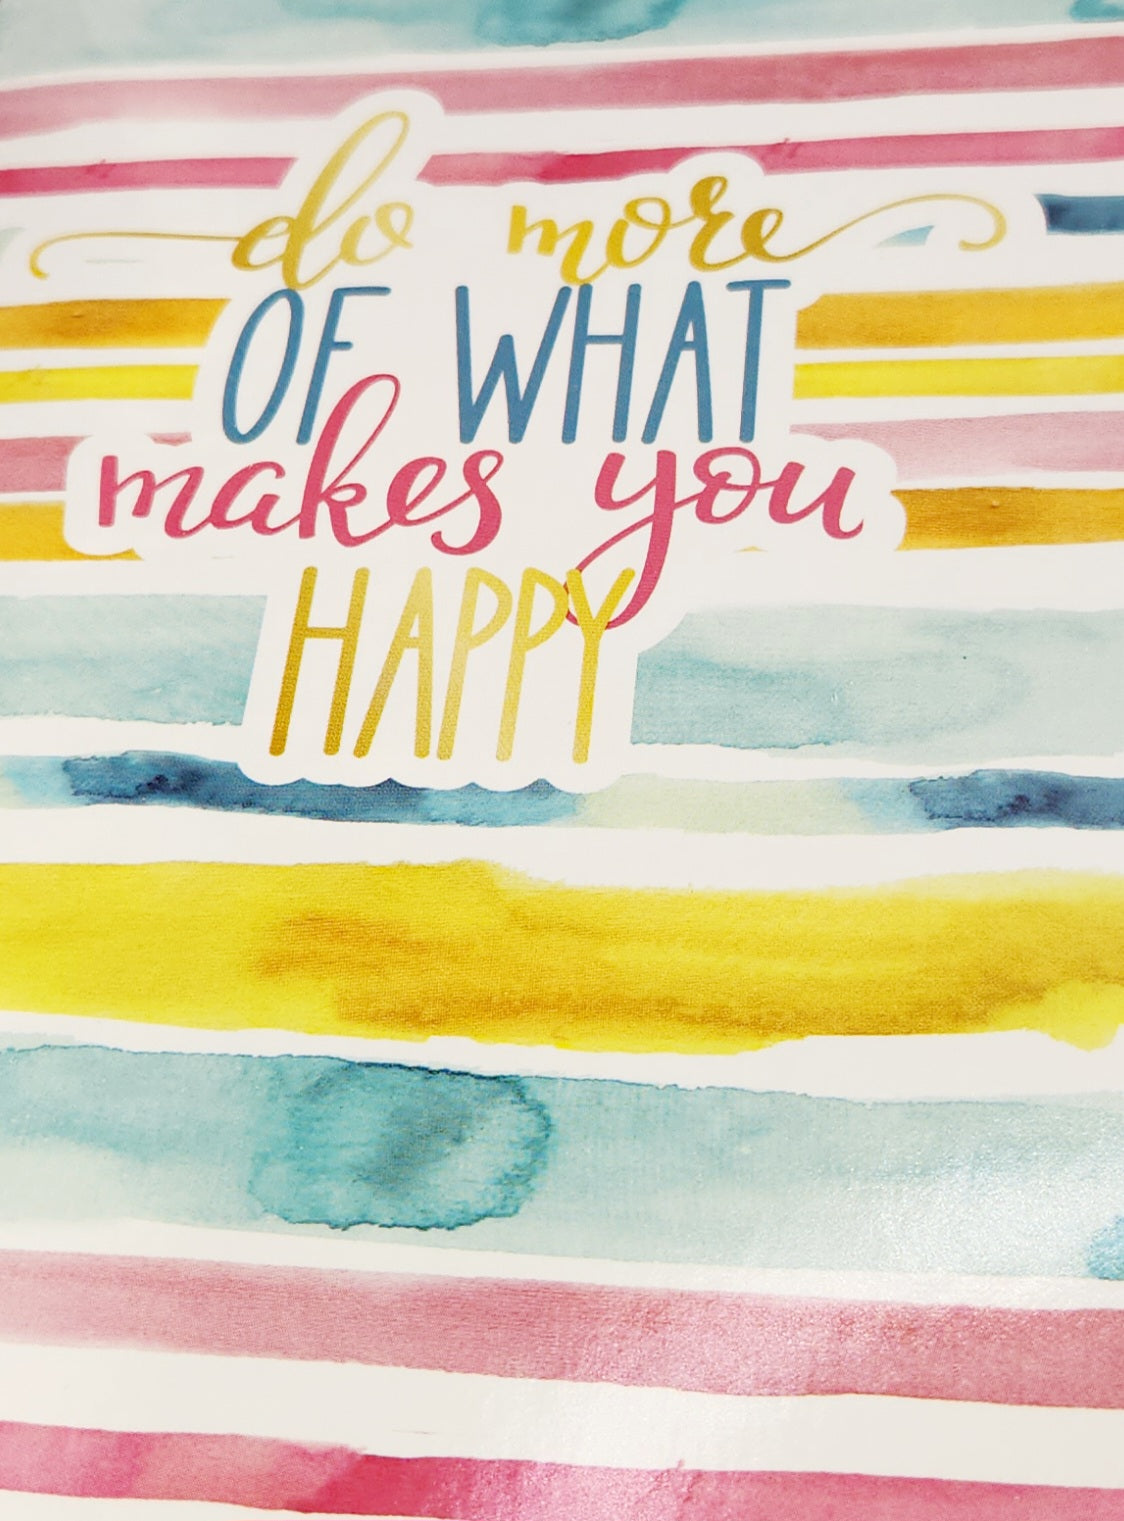 do more
OF WHAT
makes you
HAPPY